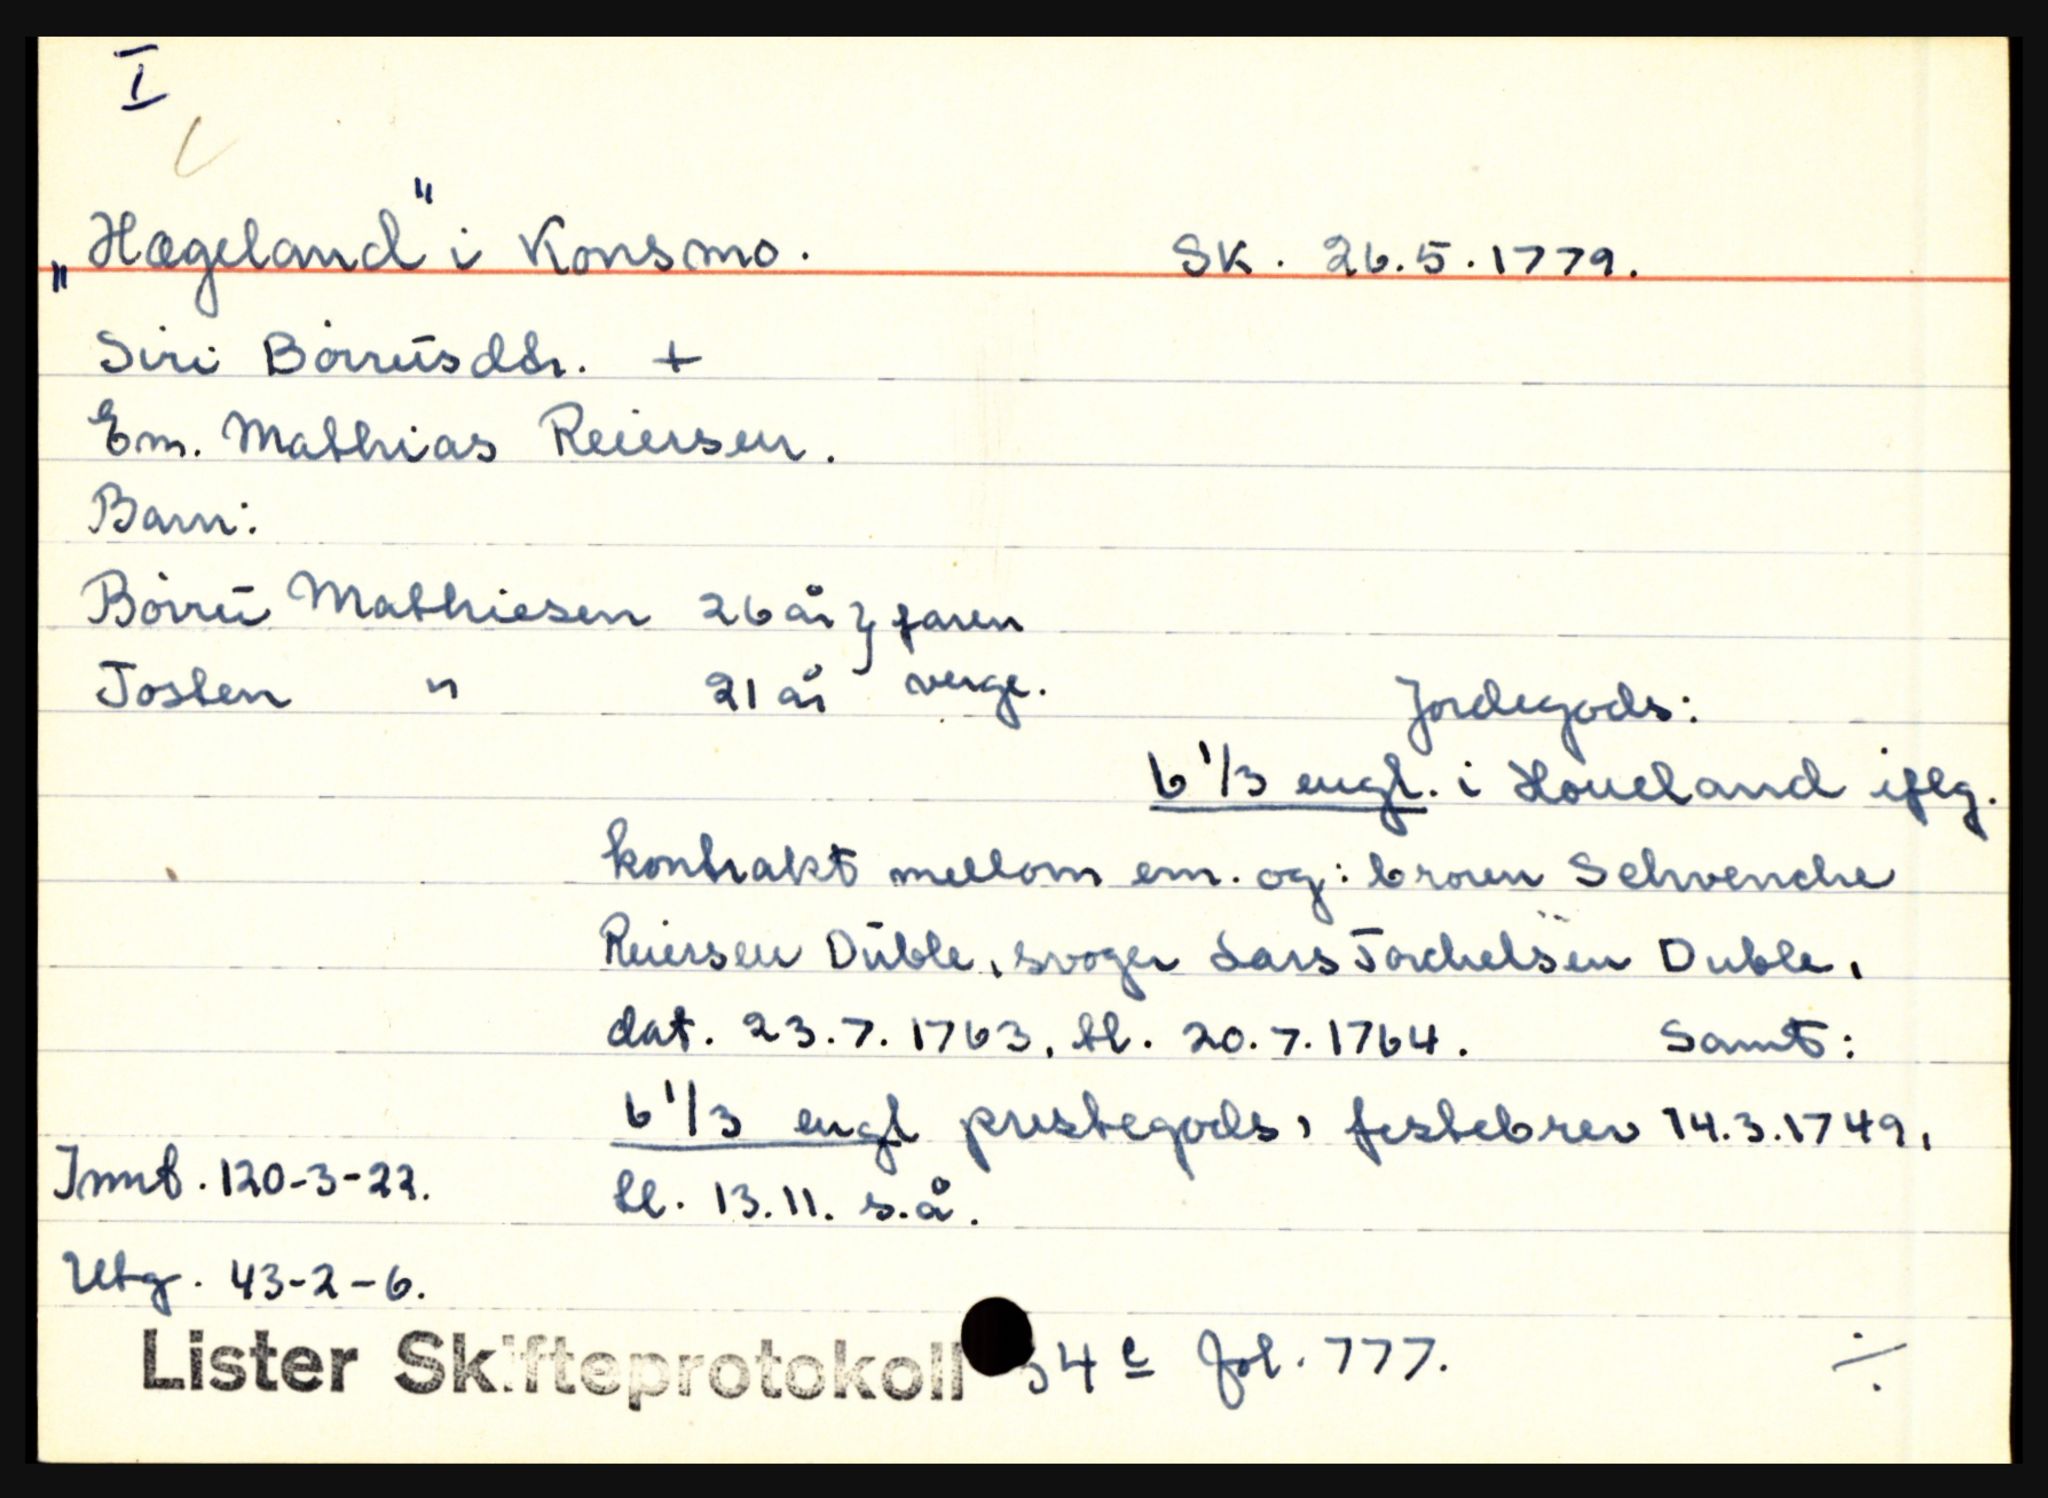 I
„Hægeland" i Konsmo. SK. 26.5.1779.
Siri Börrüsdtr. +
Em. Mathias Reiersen.
Barn:
Börrü Mathiesen 26 år } faren
Josten " 21 år verge.
Jordegods:
6 1/3 engl. i Houeland iflg.
kontrakt mellom em. og: broren Schvenche
Reiersen Düble, svoger Lars Torchelsen Duble,
dat. 23.7.1763, tl. 20.7.1764. Samt:
6 1/3 engl prestegods, festebrev 14.3.1749,
Innt. 120-3-22. tl. 13.11. s.å.
Utg. 43-2-6.
Lister Skifteprotokoll 4 e fol. 777. ÷